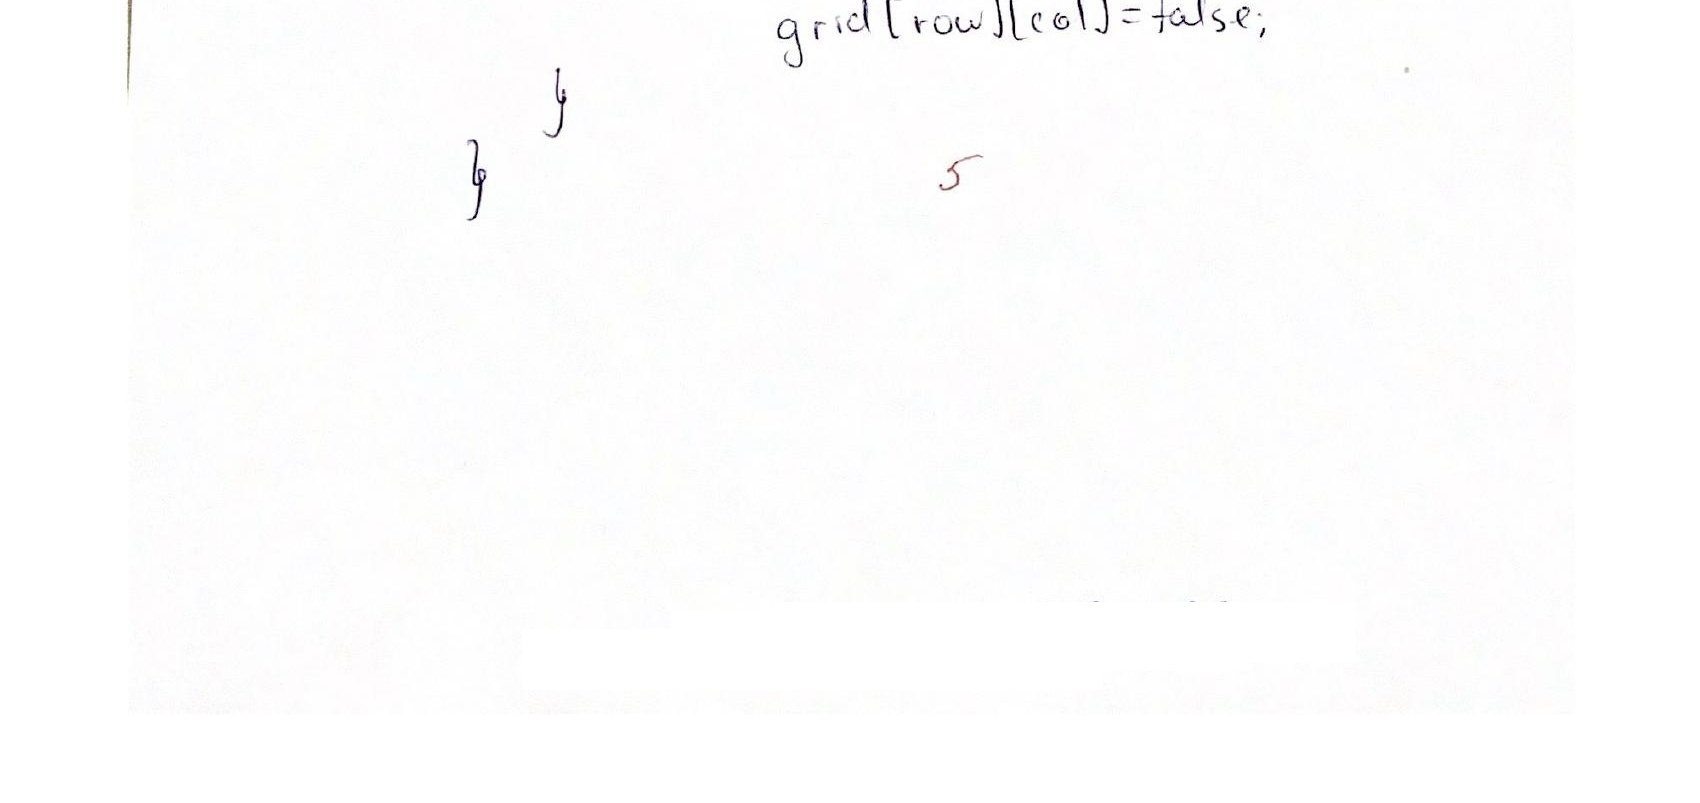 grid[row][col]=false;
}
}
5